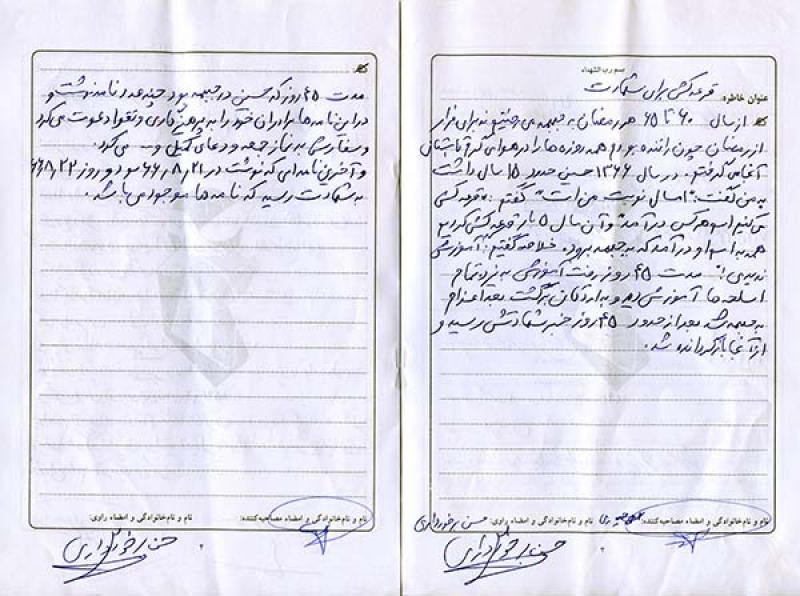 بسم رب الشهداء
عنوان خاطره: قرعه کشی برای شهادت
از سال ۶۰ تا ۶۵ هر رمضان به جبهه می رفتیم نه برای فرار
از رمضان چون راننده بودم همه روزه ها را در هوای گرم تابستانی
آنجا می گرفتم. در سال ۱۳۶۶ حسین حدود ۱۵ سال داشت
به من گفت: "امسال نوبت من است" گفتم: "قرعه کشی
می کنیم اسم هر کس در آمد" و آن سال ۵ بار قرعه کشی کردیم
همه به اسم او در آمد که به جبهه برود. خلاصه گفتیم: آموزشی
ندیدی! مدت ۴۵ روز رفت آموزشی به نزد تمام
اسلحه ها آموزش دید و به اردکان برگشت بعد اعزام
به جبهه شد بعد از حدود ۴۵ روز خبر شهادتش رسید و
از آنجا بازگردانده شد.
نام و نام خانوادگی و امضاء مصاحبه کننده:
نام و نام خانوادگی و امضاء راوی: حسن برخورداری
حسن برخورداری
مدت ۴۵ روز که حسین در جبهه بود چند عدد نامه نوشت و
در این نامه ها برادران خود را به پرهیزگاری و تقوا دعوت می کرد
و سفارش به نماز جمعه و دعای کمیل و ... می کرد.
و آخرین نامه ای که نوشت در ۶۶٫۸٫۲۱ بود و روز ۶۶٫۸٫۲۲
به شهادت رسید که نامه ها موجود می باشد.
نام و نام خانوادگی و امضاء مصاحبه کننده:
نام و نام خانوادگی و امضاء راوی:
حسن برخورداری